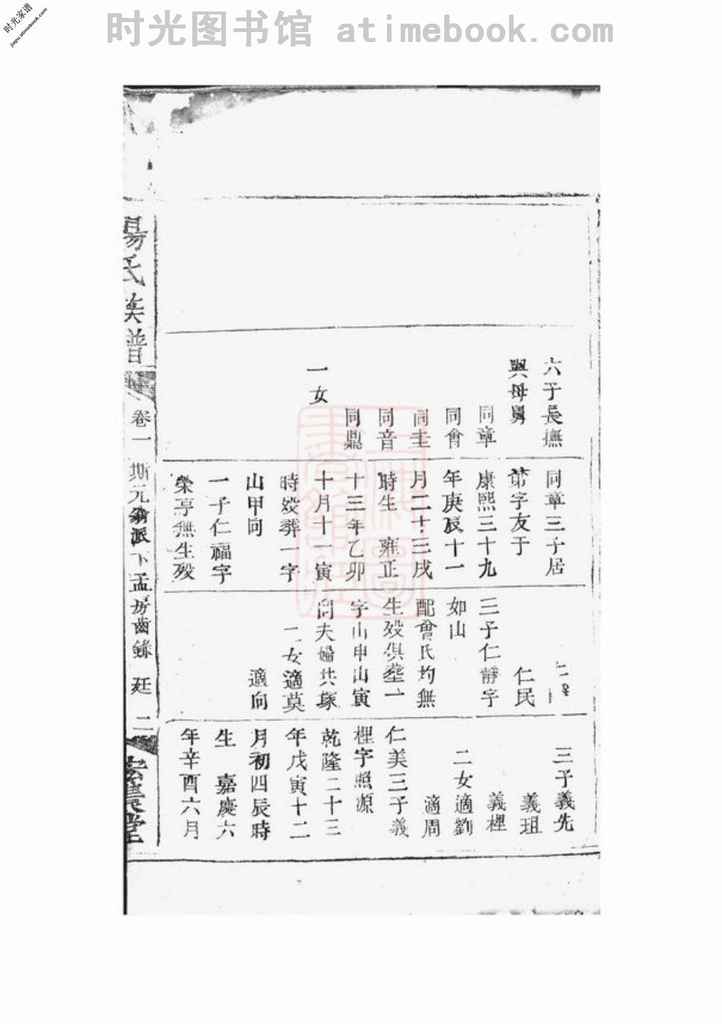 时光图书馆 atimebook.com
时光家谱
jiapu.atimebook.com
六子長撫
與母舅
同章
同會
同圭
同音
同鼎
一女
同章三子居
弟字友于
康熙三十九
年庚辰十一
月二十三戌
時生 雍正
十三年乙卯
十月十一寅
時歿葬一字
山甲向
一子仁福字
榮亭無生歿
仁民
三子仁靜字
如山
配會氏均無
生歿俱塟一
字山申山寅
向夫婦共塚
二女適莫
適向
三子義先
義珇
義梩
二女適劉
適周
仁美三子義
梩字照源
乾隆二十三
年戊寅十二
月初四辰時
生 嘉慶六
年辛酉六月
楊氏族譜
卷一
斯元翁派下孟房齒錄 廷 二
堂